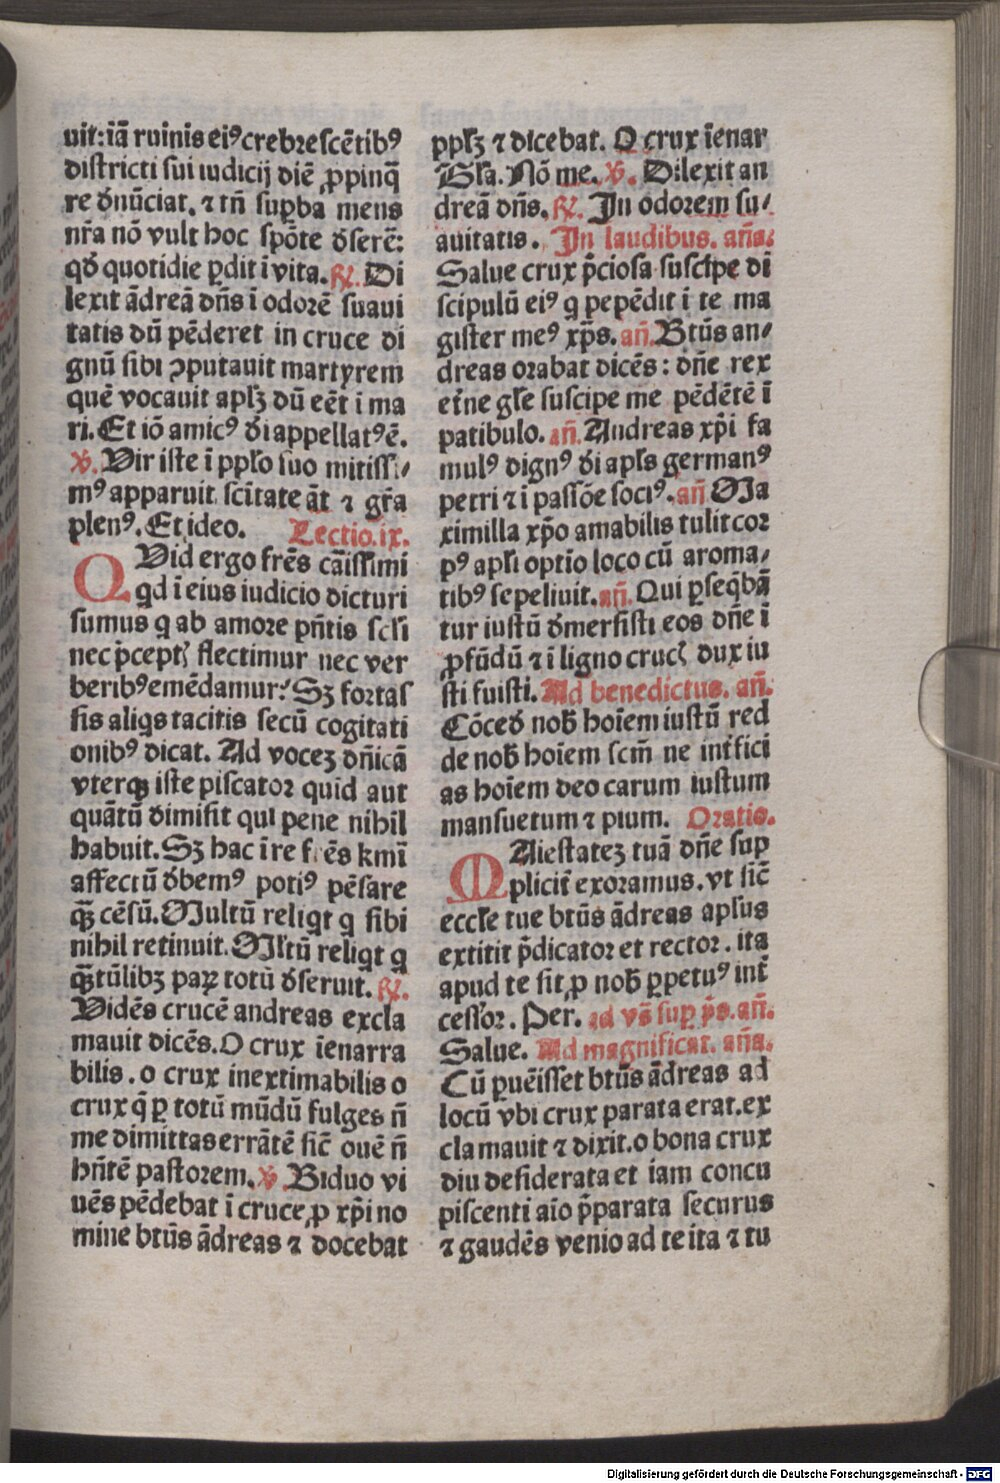 uit: iā ruinis eiꝰ crebrescētibꝰ
districti sui iudicij diē ꝓpinq̄
re dn̄ūciat. ⁊ tn̄ suꝑba mens
nr̄a nō vult hoc spōte đserē:
qđ quotidie ꝑdit ī vita. ℟. Di
lexit ādreā dn̄s ī odorē suaui
tatis dū pēderet in cruce di
gnū sibi ꝯputauit martyrem
quē vocauit aplꝫ dū eēt ī ma
ri. Et iō amicꝰ đi appellatꝰ ē.
℣. Vir iste ī pplo suo mitissi⸗
mꝰ apparuit scītate āt ⁊ gr̄a
plenꝰ. Et ideo. Lectio. ix.
QVid ergo frēs cāissimi
qd ī eius iudicio dicturi
sumus q ab amore pn̄tis scl̄i
nec p̄ceptꝭ flectimur nec ver
beribꝰ emēdamur? Sꝫ fortas
sis aliqs tacitis secū cogitati
onibꝰ dicat. Ad vocez dn̄icā
vterqꝫ iste piscator quid aut
quātū dimisit qui pene nihil
habuit. Sꝫ hac ī re frēs kmī
affectū đbemꝰ potiꝰ pēsare
qꝫ̄ cēsū. Multū reliqt q sibi
nihil retinuit. Mltū reliqt q
qꝫ̄tūlibꝫ paꝝ totū đseruit. ℟.
Vidēs crucē andreas excla
mauit dicēs. O crux īenarra
bilis. o crux inextimabilis o
crux q̄ ꝑ totū mūdū fulges n̄
me dimittas errātē sic̄ ouē n̄
hn̄tē pastorem. ℣. Biduo vi
uēs pēdebat ī cruce ꝓ xp̄i no
mine btūs ādreas ⁊ docebat
pplꝫ ⁊ dicebat. O crux īenar
Gl̄a. Nō me. ℣. Dilexit an
dreā dn̄s. ℟. In odorem su⸗
auitatis. In laudibus. an̄a.
Salue crux p̄ciosa suscipe di
scipulū eiꝰ q pepēdit ī te ma
gister meꝰ xp̄s. an̄. Btūs an⸗
dreas orabat dicēs: dn̄e rex
et̄ne gl̄e suscipe me pēdētē ī
patibulo. an̄. Andreas xp̄i fa
mulꝰ dignꝰ đi apl̄s germanꝰ
petri ⁊ ī passōe sociꝰ. an̄ Ma
ximilla xp̄o amabilis tulit cor
pꝰ apl̄i optīo loco cū aroma⸗
tibꝰ sepeliuit. an̄. Qui ꝑseq̄bā
tur iustū đmersisti eos dn̄e ī
ꝓfūdū ⁊ ī ligno crucꝭ dux iu
sti fuisti. Ad benedictus. an̄.
Cōceđ nob̄ hoīem iustū red
de nob̄ hoīem scm̄ ne int̄fici
as hoīem deo carum iustum
mansuetum ⁊ pium. Oratio.
MAiestatez tuā dn̄e sup
plicit̄ exoramus. vt sic̄
eccl̄e tue btūs ādreas apl̄us
extitit p̄dicator et rector. ita
apud te sit ꝓ nob̄ ꝑpetuꝰ int̄
cessor. Per. ad vs̄ suꝑ p̄s. an̄.
Salue. Ad magnificat. an̄a.
Cū ꝑuēisset btūs ādreas ad
locū vbi crux parata erat. ex
clamauit ⁊ dixit. o bona crux
diu desiderata et iam concu
piscenti aīo p̄parata securus
⁊ gaudēs venio ad te ita ⁊ tu
Digitalisierung gefördert durch die Deutsche Forschungsgemeinschaft - DFG